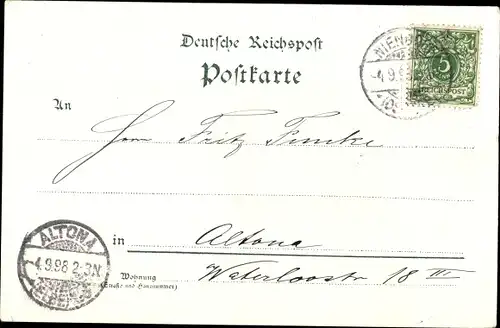 Deutsche Reichspost
Postkarte
4.9.98
5
REICHSPOST
An
Herr Fritz Timke
in Altona
Wohnung
(Straße und Hausnummer)
Waterloostr 18 III
ALTONA
4.9.98 2-3N
(ELBE)